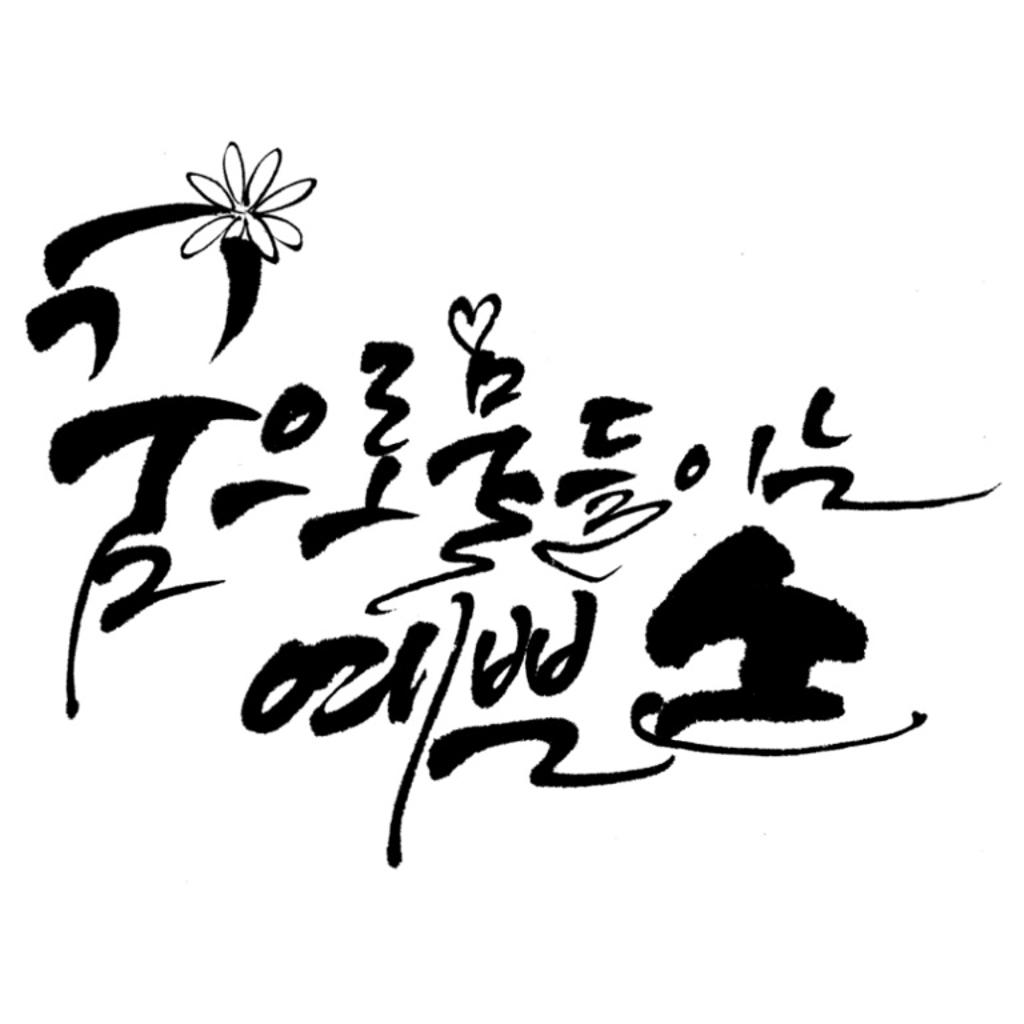 꿈으로물들이는
예쁜손